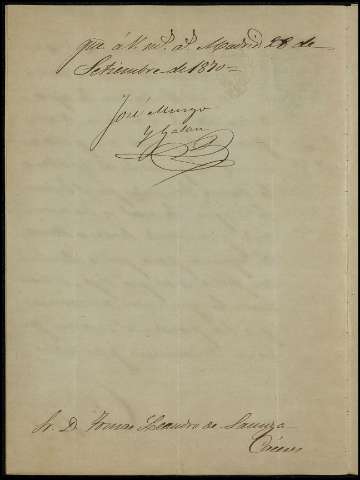 que á V. ms. as. Madrid 28 de
Setiembre de 1870=
José Murgo
y Galan
Sr. Dn. Tomas Leandro de
Cáceres